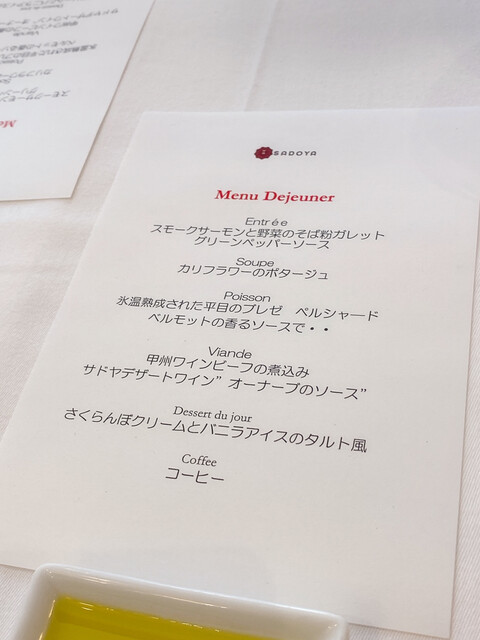 SADOYA
Menu Dejeuner
Entrée
スモークサーモンと野菜のそば粉ガレット
グリーンペッパーソース
Soupe
カリフラワーのポタージュ
Poisson
氷温熟成された平目のブレゼ　ペルシャード
ベルモットの香るソースで・・
Viande
甲州ワインビーフの煮込み
サドヤデザートワイン”オーナーブのソース”
Dessert du jour
さくらんぼクリームとバニラアイスのタルト風
Coffee
コーヒー